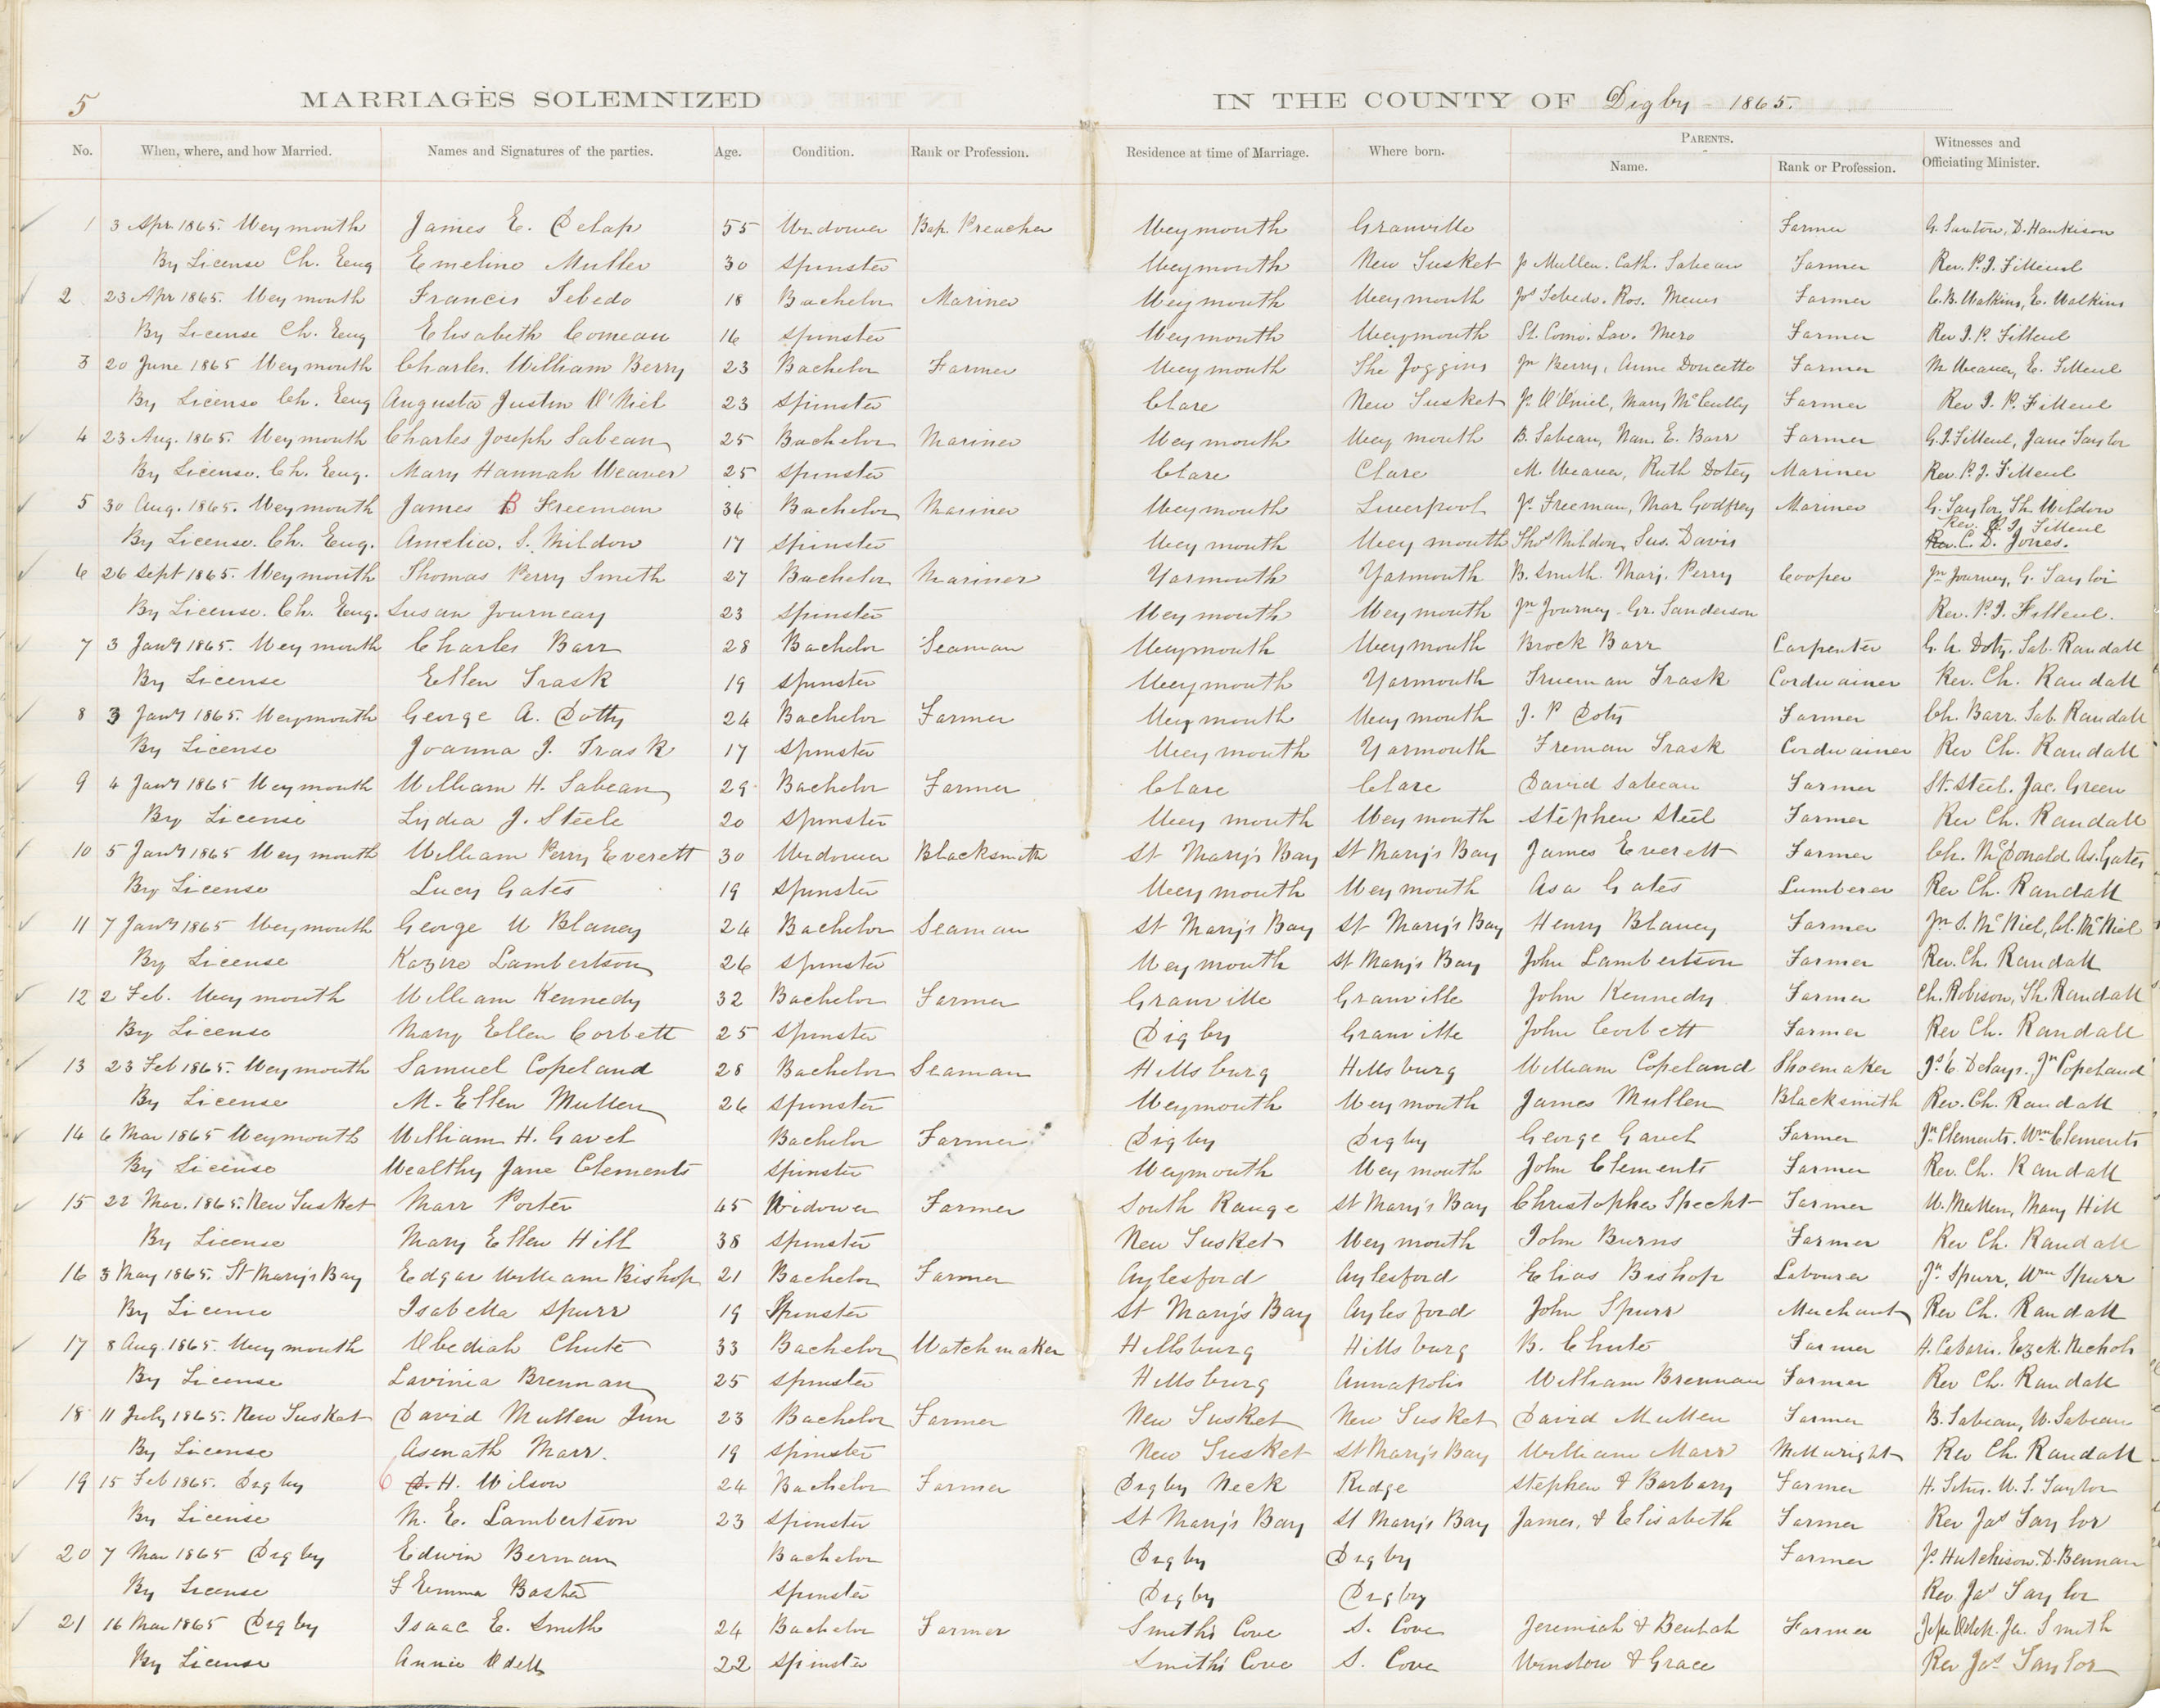 5
MARRIAGES SOLEMNIZED IN THE COUNTY OF Digby - 1865.
No. When, where, and how Married. Names and Signatures of the parties. Age. Condition. Rank or Profession. Residence at time of Marriage. Where born. PARENTS. Name. Rank or Profession. Witnesses and Officiating Minister.
1 3 Apr 1865. Weymouth James E. Delap 55 Widower Bap. Preacher Weymouth Granville Farmer G. Santon, D. Hankison
By License Ch. Eng Emeline Mullen 30 Spinster Weymouth New Tusket Js Mullen. Cath. Sabean Farmer Rev. P.J. Filleul
2 23 Apr 1865. Weymouth Francis Tebedo 18 Bachelor Mariner Weymouth Weymouth Jos Tebedo. Ros. Farmer C.B. Watkins, E. Watkins
By License Ch. Eng Elisabeth Comeau 16 Spinster Weymouth Weymouth St. Como. Lav. Mero Farmer Rev J.P. Filleul
3 20 June 1865 Weymouth Charles William Berry 23 Bachelor Farmer Weymouth The Joggins Jn Berry, Anne Doucette Farmer M Weaver, E. Filleul
By License Ch. Eng Augusta Justin O'Niel 23 Spinster Clare New Tusket Js O'Oniel, Mary McCully Farmer Rev J. P. Filleul
4 23 Aug. 1865. Weymouth Charles Joseph Sabean 25 Bachelor Mariner Weymouth Weymouth B. Sabean, Nan. E. Barr Farmer G.J. Filleul, Jane Taylor
By License. Ch. Eng. Mary Hannah Weaver 25 Spinster Clare Clare M. Weaver, Ruth Dotey Mariner Rev. P.J. Filleul
5 30 Aug. 1865. Weymouth James B Freeman 36 Bachelor Mariner Weymouth Liverpool Js. Freeman, Mar. Godfrey Mariner G. Taylor, Th. Mildon
Rev. P.J. Filleul
By License. Ch. Eng. Amelia. S. Mildon 17 Spinster Weymouth Weymouth Thos Mildon, Sus. Davis Rev. C. D. Jones.
6 26 Sept 1865. Weymouth Thomas Perry Smith 27 Bachelor Mariner Yarmouth Yarmouth B. Smith. Marj. Perry Cooper Jn Journey, G. Taylor
By License. Ch. Eng. Susan Journeay 23 Spinster Weymouth Weymouth Jn Journey. Gr. Sanderson Rev. P.J. Filleul.
7 3 Jany 1865. Weymouth Charles Barr 28 Bachelor Seaman Weymouth Weymouth Brock Barr Carpenter G. A. Doty. Sab. Randall
By License Ellen Trask 19 Spinster Weymouth Yarmouth Trueman Trask Cordwainer Rev. Ch. Randall
8 3 Jany 1865. Weymouth George A. Dotty 24 Bachelor Farmer Weymouth Weymouth J. P Doty Farmer Ch. Barr. Sab. Randall
By License Joanna J. Trask 17 Spinster Weymouth Yarmouth Freman Trask Cordwainer Rev Ch. Randall
9 4 Jany 1865 Weymouth William H. Sabean 29 Bachelor Farmer Clare Clare David Sabean Farmer St. Steel. Jac. Green
By License Lydia J. Steele 20 Spinster Weymouth Weymouth Stephen Steel Farmer Rev Ch. Randall
10 5 Jany 1865 Weymouth William Perry Everett 30 Widower Blacksmith St Mary's Bay St Mary's Bay James Everett Farmer Ch. McDonald. As. Gates
By License Lucy Gates 19 Spinster Weymouth Weymouth Asa Gates Lumberer Rev Ch. Randall
11 7 Jany 1865 Weymouth George W Blaney 24 Bachelor Seaman St Mary's Bay St Mary's Bay Henry Blaney Farmer Jn S. McNiel, Cl. McNiel
By License Kozire Lambertson 26 Spinster Weymouth St Mary's Bay John Lambertson Farmer Rev. Ch. Randall
12 2 Feb. Weymouth William Kennedy 32 Bachelor Farmer Granville Granville John Kennedy Farmer Ch. Robison, Th. Randall
By License Mary Ellen Corbett 25 Spinster Digby Granville John Corbett Farmer Rev Ch. Randall
13 23 Feb 1865. Weymouth Samuel Copeland 28 Bachelor Seaman Hillsburg Hillsburg William Copeland Shoemaker Js. E Delays. Jn Copeland
By License M. Ellen Mullen 26 Spinster Weymouth Weymouth James Mullen Blacksmith Rev. Ch. Randall
14 6 Mar 1865 Weymouth William H. Gavel Bachelor Farmer Digby Digby George Gavel Farmer Jn Clements. Wm Clements
By License Wealthy Jane Clements Spinster Weymouth Weymouth John Clements Farmer Rev. Ch. Randall
15 22 Mar. 1865. New Tusket Marr Porter 45 Widower Farmer South Range St Mary's Bay Christopher Specht Farmer W. Mullen, Mary Hill
By License Mary Ellen Hill 38 Spinster New Tusket Weymouth John Burns Farmer Rev Ch. Randall
16 3 May 1865. St Mary's Bay Edgar William Bishop 21 Bachelor Farmer Aylesford Aylesford Elias Bishop Labourer Jn Spurr, Wm Spurr
By License Isabella Spurr 19 Spinster St Mary's Bay Aylesford John Spurr Merchant Rev Ch. Randall
17 8 Aug. 1865. Weymouth Obediah Chute 33 Bachelor Watchmaker Hillsburg Hillsburg B. Chute Farmer H. Ezek. Nichols
By License Lavinia Brennan 25 Spinster Hillsburg Annapolis William Brennan Farmer Rev Ch. Randall
18 11 July 1865. New Tusket David Mullen Jun 23 Bachelor Farmer New Tusket New Tusket David Mullen Farmer B. Sabean, W. Sabean
By License Asenath Marr. 19 Spinster New Tusket St Mary's Bay William Marr Millwright Rev Ch. Randall
19 15 Feb 1865. Digby C D. H. Wilson 24 Bachelor Farmer Digby Neck Ridge Stephen & Barbary Farmer H. W. S. Taylor
By License M. E. Lambertson 23 Spinster St Mary's Bay St Mary's Bay James, & Elisabeth Farmer Rev Jas Taylor
20 7 Mar 1865 Digby Edwin Berman Bachelor Digby Digby Farmer Js. Hutchison. D. Bennan
By License S Emma Baster Spinster Digby Digby Rev Jas Taylor
21 16 Mar 1865 Digby Isaac E. Smith 24 Bachelor Farmer Smith's Cove S. Cove Jeremiah & Beulah Farmer Odell. Ja. Smith
By License Annie Odell 22 Spinster Smith's Cove S. Cove Winslow & Grace Rev Jas Taylor